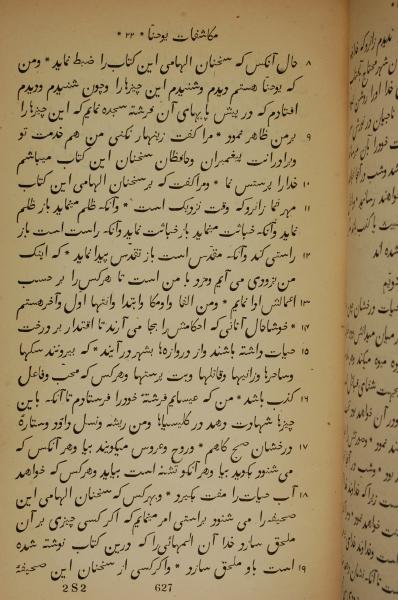 مکاشفات یوحنا * ۲۲ *
۸ حال آنکس که سخنان الهامی این کتاب را ضبط نماید * ومن
که یوحنا هستم دیدم وشنیدم این چیزها را وچون شنیدم ودیدم
افتادم که در پیش پایهای آن فرشته سجده نمایم که این چیزها را
۹ برمن ظاهر نمود * مرا گفت زینهار نکنی من هم خدمت تو
وبرادرانت پیغمبران وحافظان سخنان این کتاب میباشم
۱۰ خدا را پرستش نما * ومرا گفت که بر سخنان الهامی این کتاب
۱۱ مهر منما زانروکه وقت نزدیک است * وآنکه ظلم مینماید باز ظلم
نماید وآنکه خباثت مینماید باز خباثت نماید وآنکه راست است باز
راستی کند وآنکه مقدس است باز تقدس پیدا نماید *
۱۲ که اینک من بزودی می آیم ومزد با من است تا هرکس را بر حسب
۱۳ اعمالش ادا نمایم * ومن الفا واومکا وابتدا وانتها اول وآخر هستم
۱۴ * خوشا حال آنانی که احکامش را بجا می آرند تا اقتدار بر درخت
۱۵ حیات داشته باشند واز دروازها بشهر درآیند * که بیرونند سگها
وساحرها وزانیها وقاتلها وبت پرستها وهرکس که محب وفاعل
۱۶ کذب باشد * من که عیسایم فرشتهٔ خود را فرستادم تا آنکه باین
چیزها شهادت دهد در کلیسیاها ومن ریشه ونسل داود وستارهٔ
۱۷ درخشان صبح گاهم * وروح وعروس میگویند بیا وهر آنکس که
می شنود بگوید بیا وهر آنکو تشنه است بیاید وهرکس که خواهد
۱۸ آب حیات را مفت بگیرد * وبهرکس که سخنان الهامی این
صحیفه را می شنود براستی امر مینمایم که اگر کسی چیزی بر آن
ملحق سازد خدا آن المهائی را که درین کتاب نوشته شده
۱۹ است باو ملحق سازد * واگر کسی از سخنان این صحیفهٔ
2 S 2 627